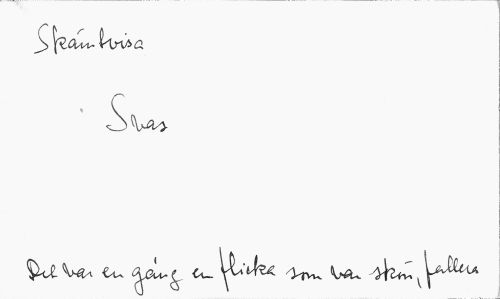 Skämtvisa
Svas
Det var en gång en flicka som var skön, fallera